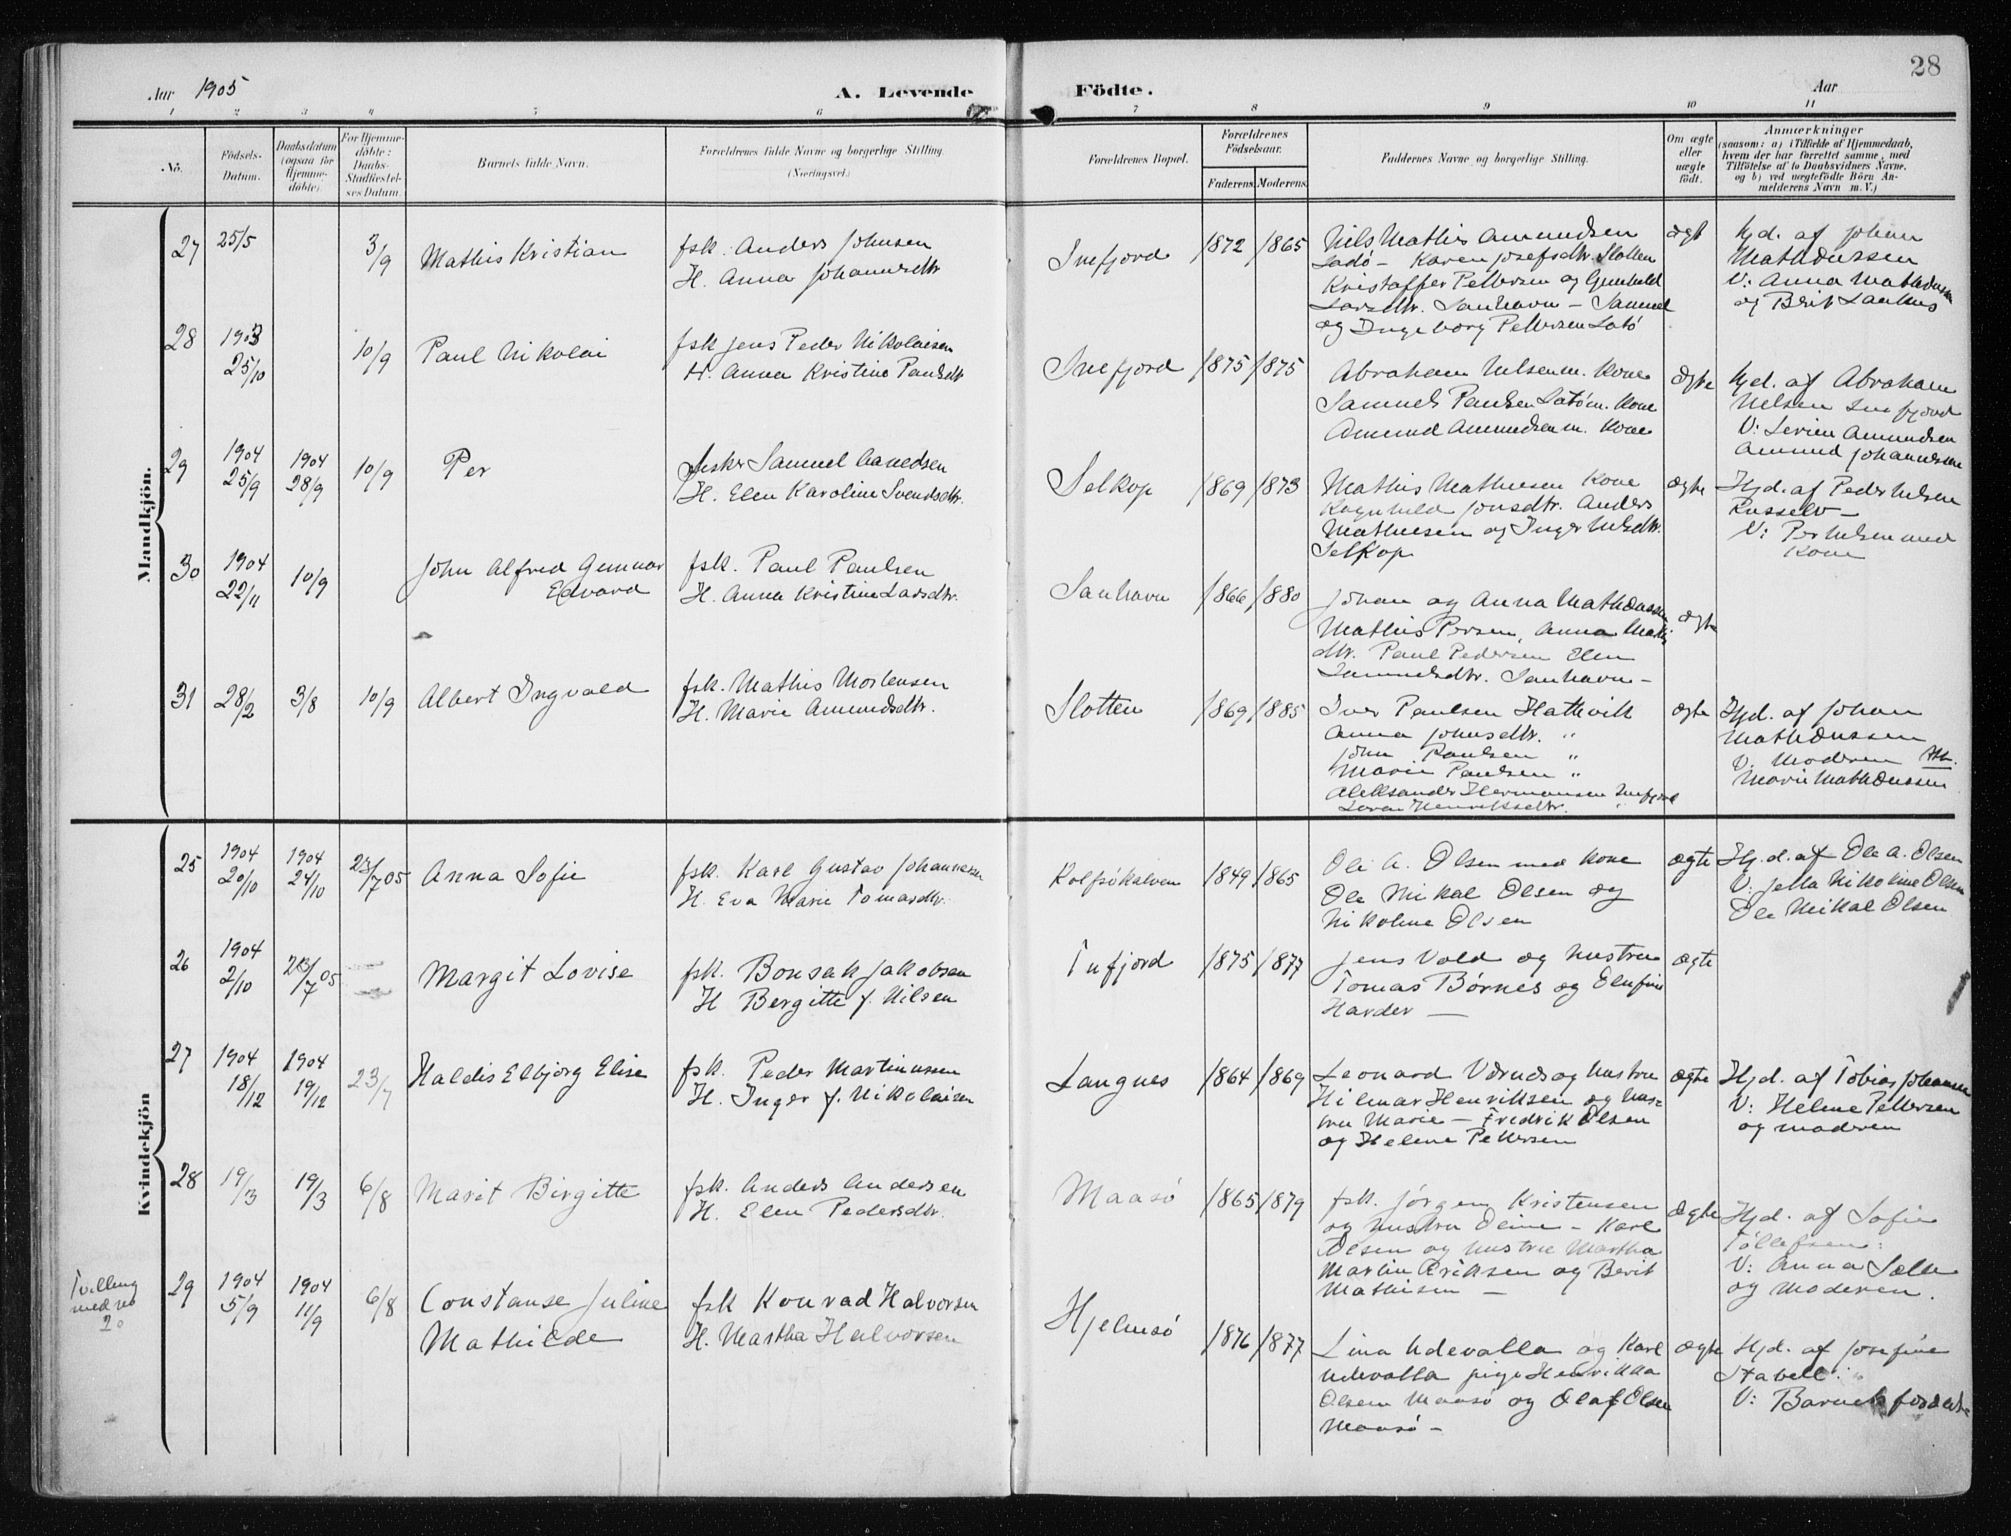 28
Aar 1905
A. Levende
Födte.
Aar
1 2 3 4 5 6 7 8 9 10 11
No.
Födsels-
Datum.
Daabsdatum
(ogsaa for
Hjemme-
döbte).
For Hjemme-
döbte:
Daabs-
Stadfæstel-
ses Datum.
Barnets fulde Navn.
Forældrenes fulde Navne og borgerlige Stilling.
(Næringsvei.)
Forældrenes Bopæl.
Forældrenes
Födselsaar.
Faderens. Moderens.
Faddernes Navne og borgerlige Stilling.
Om ægte
eller
uægte
födt.
Anmærkninger
(saasom: a) i Tilfælde af Hjemmedaab,
hvem der har forrettet samme, med
Tilföielse af to Daabsvidners Navne,
og b) ved uægtefödte Börn An-
melderens Navn m. V.)
Mandkjön.
27 25/5 3/9 Mathis Kristian
fsk. Anders Johnsen
H. Anna Johannesdtr
Snefjord 1872 1865
Nils Mathis Amundsen
Karen Josefsdtr. Slotten
Kristoffer Pettersen og Gunhild
Larsdtr. Sanhavn - Samuel
og Ingeborg Pettersen Latö
ægt
Hjd. af Johan
Mathæussen
V: Anna Mathæussen
og Berit
28 1903
25/10 10/9 Paul Nikolai
fsk Jens Peder Nikolaisen
H. Anna Kristine Paulsdtr
Snefjord 1875 1875
Abraham Nilsen m. Kone
Samuel Paulsen Latö m. Kone
Amund Amundsen m. Kone
ægte
Hjd. af Abraham
Nilsen Snefjord
V: Amundsen
Amund Johannesen
29 1904
25/9 1904
28/9 10/9 Per
fisker Samuel
H. Elen Karoline Svendsdtr.
Selkop 1869 1873
Mathis Mathisen Kone
Ragnhild Jonsdtr. Anders
Mathisen og Inger Nilsdtr.
Selkop
ægte
Hjd. af Peder Nilsen
Russelv -
V: Per Nilsen med
Kone
30 1904
22/11 10/9 John Alfred Gunnar
Edvard
fsk. Paul Paulsen
H. Anna Kristine Larsdtr.
Sanhavn 1866 1880
Johan og Anna Mathæussen
Mathis Persen, Anna Mathis
dtr. Paul Pedersen Elen
Samuelsdtr. Sanhavn -
ægte
31 28/2 3/8 10/9 Albert Ingvald
fsk. Mathis Mortensen
H. Marie Amundsdtr.
Slotten 1869 1885
Iver Paulsen Hattevik
Anna Johnsdtr. "
John Paulsen "
Marie Paulsen "
Aleksander Hermansen Snefjord
Henriksdtr. "
ægte
Hjd. af Johan
Mathæussen
V. Moderen
Marie Mathæussen
Kvindekjön
25 1904
20/10 1904
24/10 23/7 05 Anna Sofie
fsk. Karl Gustav Johannesen
H. Eva Marie Tomasdtr.
Rolfsökalven 1849 1865
Ole A. Olsen med Kone
Ole Mikal Olsen og
Nikoline Olsen
ægte
Hj.d. af Ole A. Olsen
V: Jetta Nikoline Olsen
Ole Mikal Olsen
26 1904
2/10 23/7 05 Margit Lovise
fsk. Bonsak Jakobsen
H Bergitte f. Nilsen
Tufjord 1875 1877
Jens Vold og hustru
Tomas Börnes og Elufine
Harder -
ægte
27 1904
18/12 1904
19/12 23/7 Haldis Elbjörg Elise
fsk. Peder Martinussen
H. Inger f. Nikolaisen
Langnes 1864 1869
Leonard Værnes og hustru
Hilmar Henriksen og hus-
tru Marie - Fredrik Olsen
og Helene Pettersen
ægte
Hjd. af Tobias Johansen
V: Helene Pettersen
og moderen
28 19/3 19/3 6/8 Marit Birgitte
fsk. Anders Andersen
H. Elen Pedersdtr.
Maasö 1865 1879
fsk. Jörgen Kristensen
og hustru Oline - Karl
Olsen og hustru Martha
Martin Eriksen og Berit
Mathisen -
ægte
Hjd. af Sofie
Tollefsen:
V: Anna Sælle
og Moderen.
Tvilling
med no
20
29 1904
5/9 1904
11/9 6/8 Constanse Juline
Mathilde
fsk Konrad Halvorsen
H. Martha Halvorsen
Hjelmsö 1876 1877
Lina Udevalla og Karl
Udevalla pige Henrikka
Olsen Maasö og Olaf Olsen
Maasö -
ægte
Hjd. af Josefine
Stabell:
V: Barnets forældre